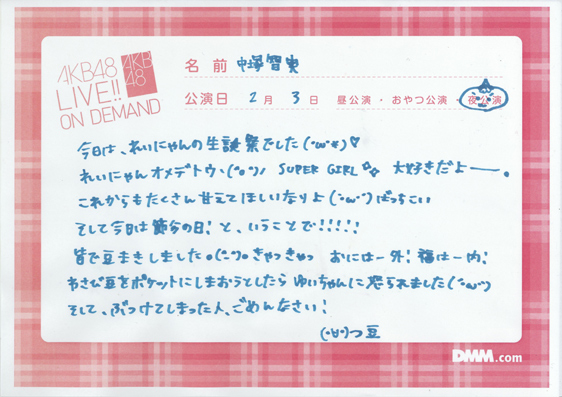 AKB48
LIVE!!
ON DEMAND
AKB
48
名 前 中塚智実
公演日 2 月 3 日 昼公演・おやつ公演・夜公演
今日は、れいにゃんの生誕祭でした(・ω・*)♡
れいにゃんオメデトウヽ(°o°)ﾉ SUPER GIRL☆☆ 大好きだよー。
これからもたくさん甘えてほしいなりよ(・ω・)ばっちこい
そして今日は節分の日!と、いうことで!!!!!
皆で豆まきしました。(°ー°)。きゃっきゃっ おにはー外!福はー内!
わさび豆をポケットにしまおうとしたら ゆいちゃんに怒られました(・ω・)
そして、ぶつけてしまった人、ごめんなさい!
(・∀・)つ豆
DMM.com